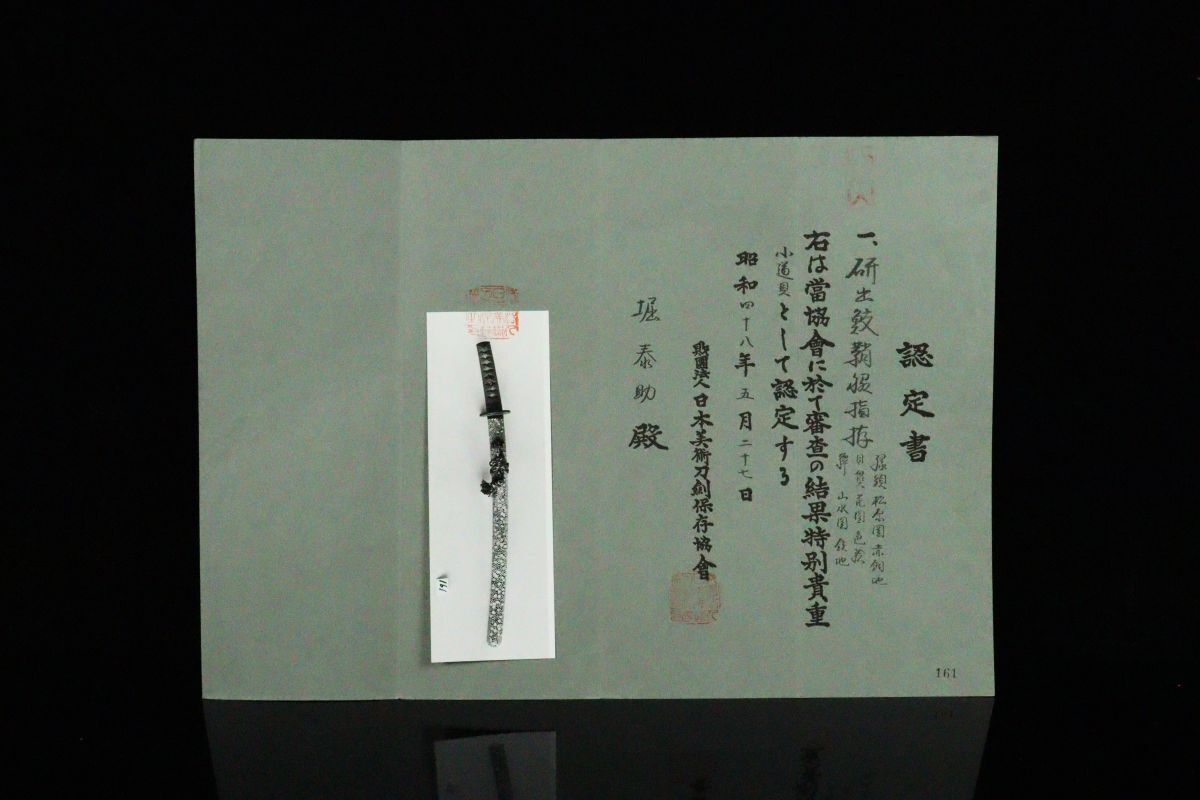 認定書
一、研出鮫鞘脇指拵
縁頭 松原図 赤銅地
目貫 花図 色絵
鐔 山水図 鉄地
右は當協會に於て審査の結果特別貴重
小道具として認定する
昭和四十八年五月二十七日
財團法人日本美術刀剣保存協會
堀泰助殿
191
161